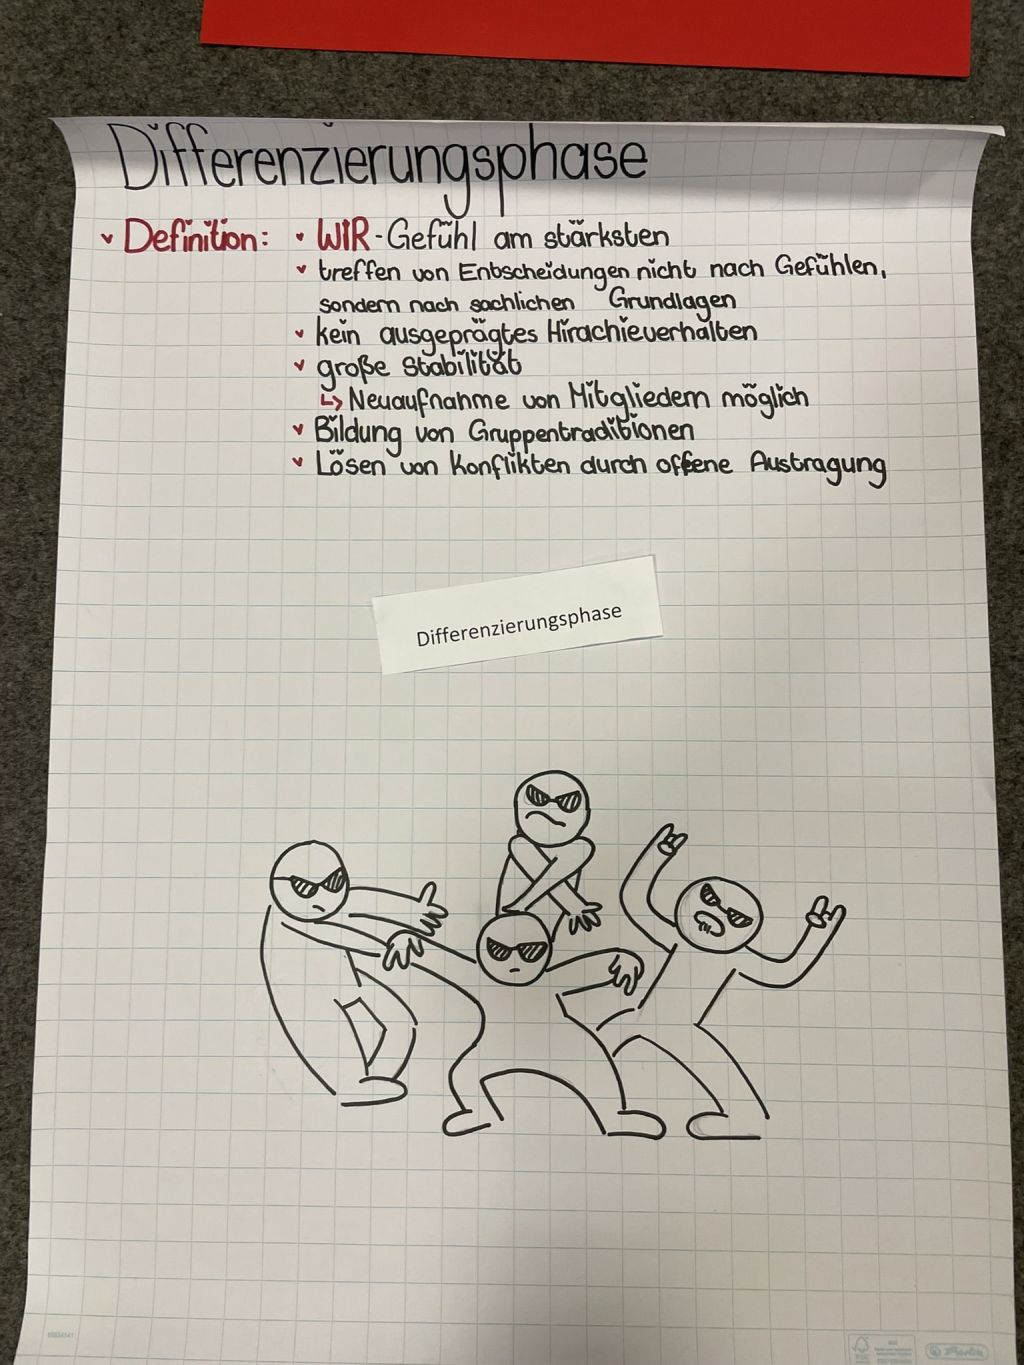 Differenzierungsphase
Definition: WIR-Gefühl am stärksten
treffen von Entscheidungen nicht nach Gefühlen,
sondern nach sachlichen Grundlagen
kein ausgeprägtes Hirachieverhalten
große Stabilität
↳ Neuaufnahme von Mitgliedern möglich
Bildung von Gruppentraditionen
Lösen von Konflikten durch offene Austragung
Differenzierungsphase